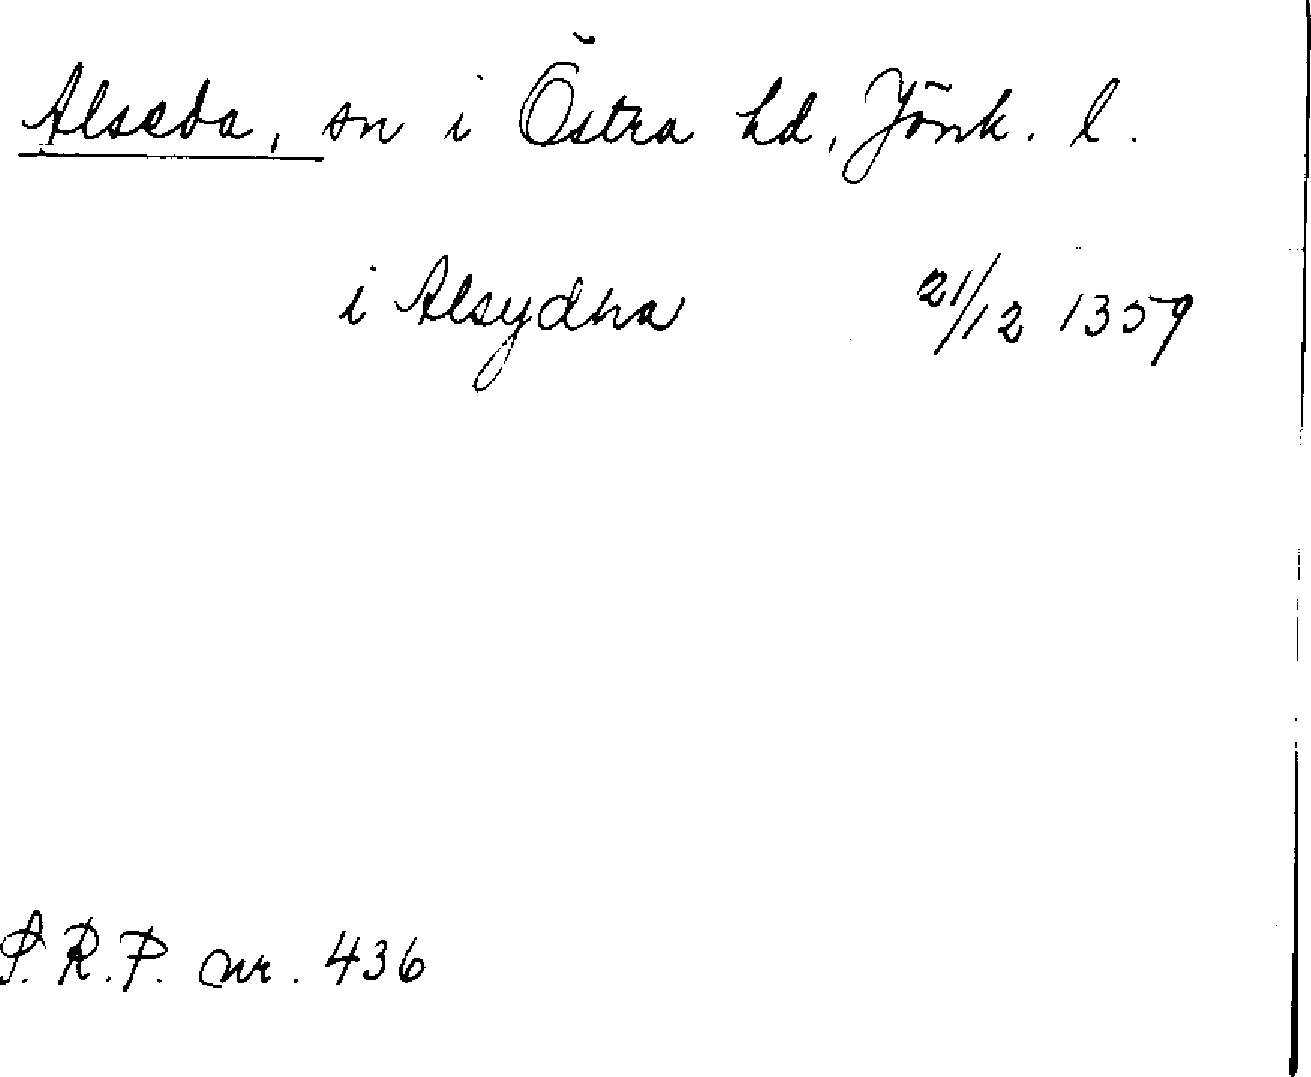 Alseda, sn i Östra hd, Jönk. l.
i Alsydha 21/12 1359
S.R.P. nr. 436